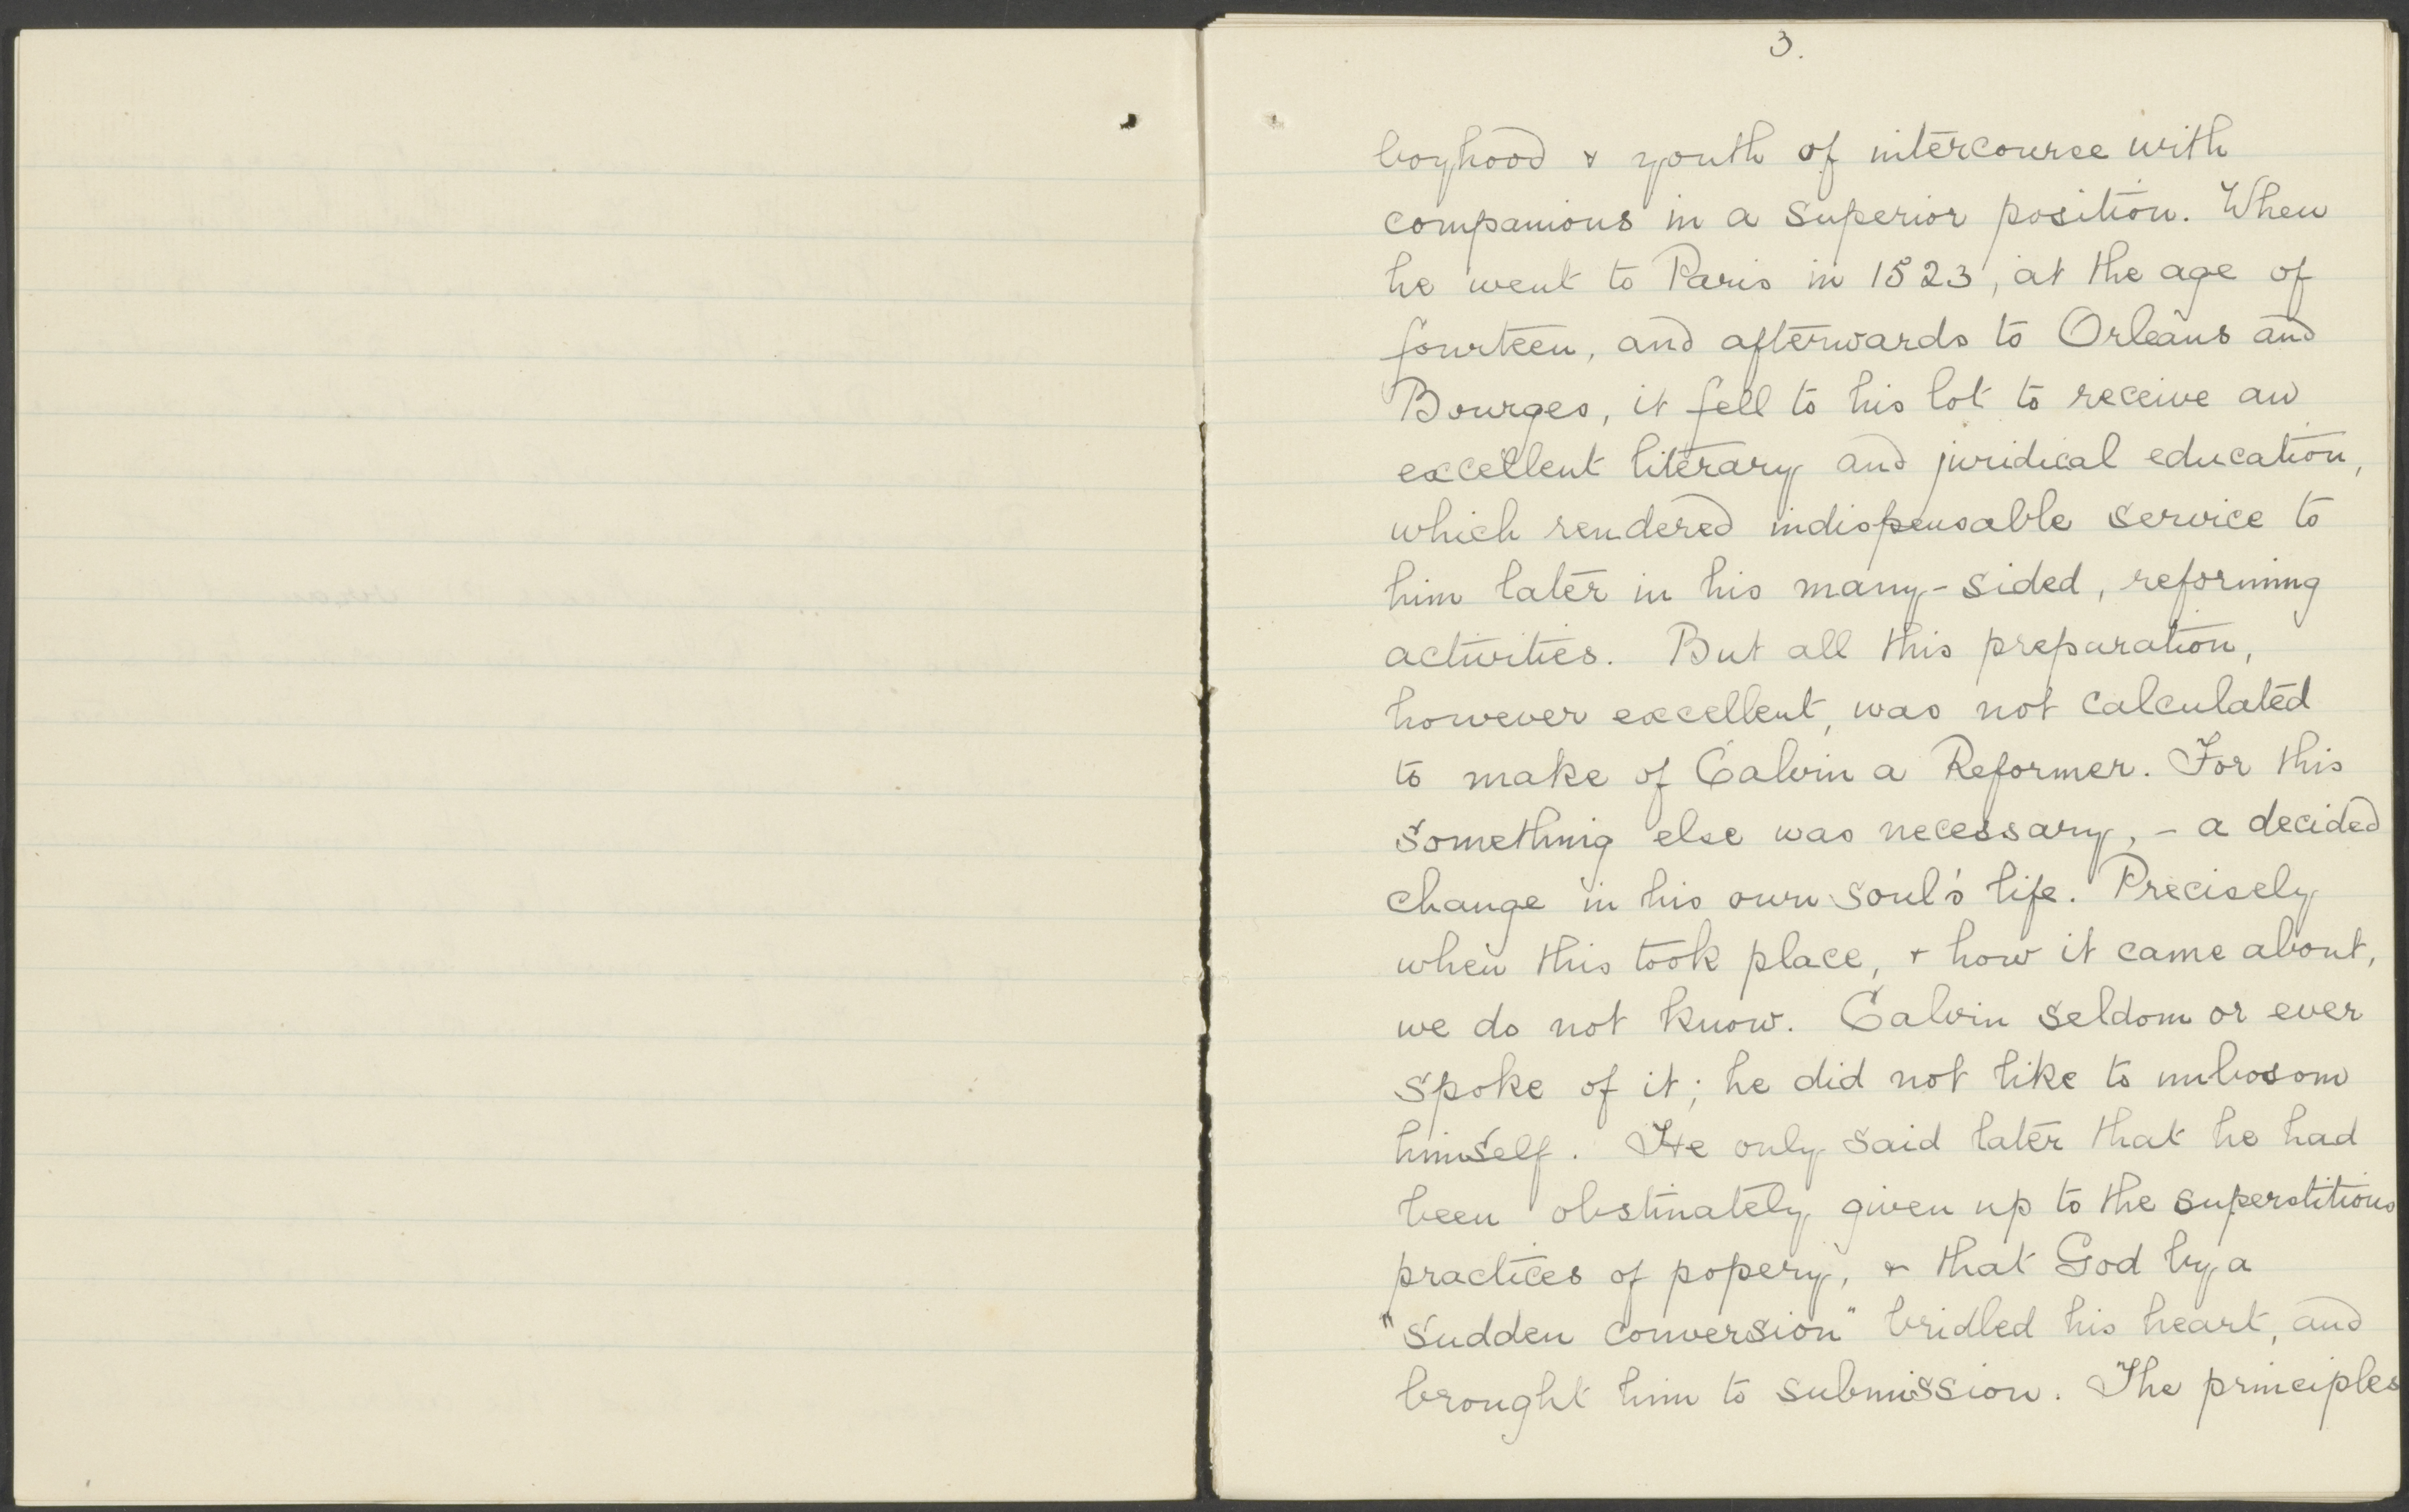 3.
boyhood & youth of intercourse with
companions in a superior position. When
he went to Paris in 1523, at the age of
fourteen, and afterwards to Orleans and
Bourges, it fell to his lot to receive an
excellent literary and juridical education,
which rendered indispensable service to
him later in his many-sided, reforming
activities. But all this preparation,
however excellent, was not calculated
to make of Calvin a Reformer. For this
something else was necessary, - a decided
change in his own soul's life. Precisely
when this took place, & how it came about,
we do not know. Calvin seldom or ever
spoke of it; he did not like to unbosom
himself. He only said later that he had
been obstinately given up to the superstitious
practices of popery, & that God by a
"sudden conversion" bridled his heart, and
brought him to submission. The principles